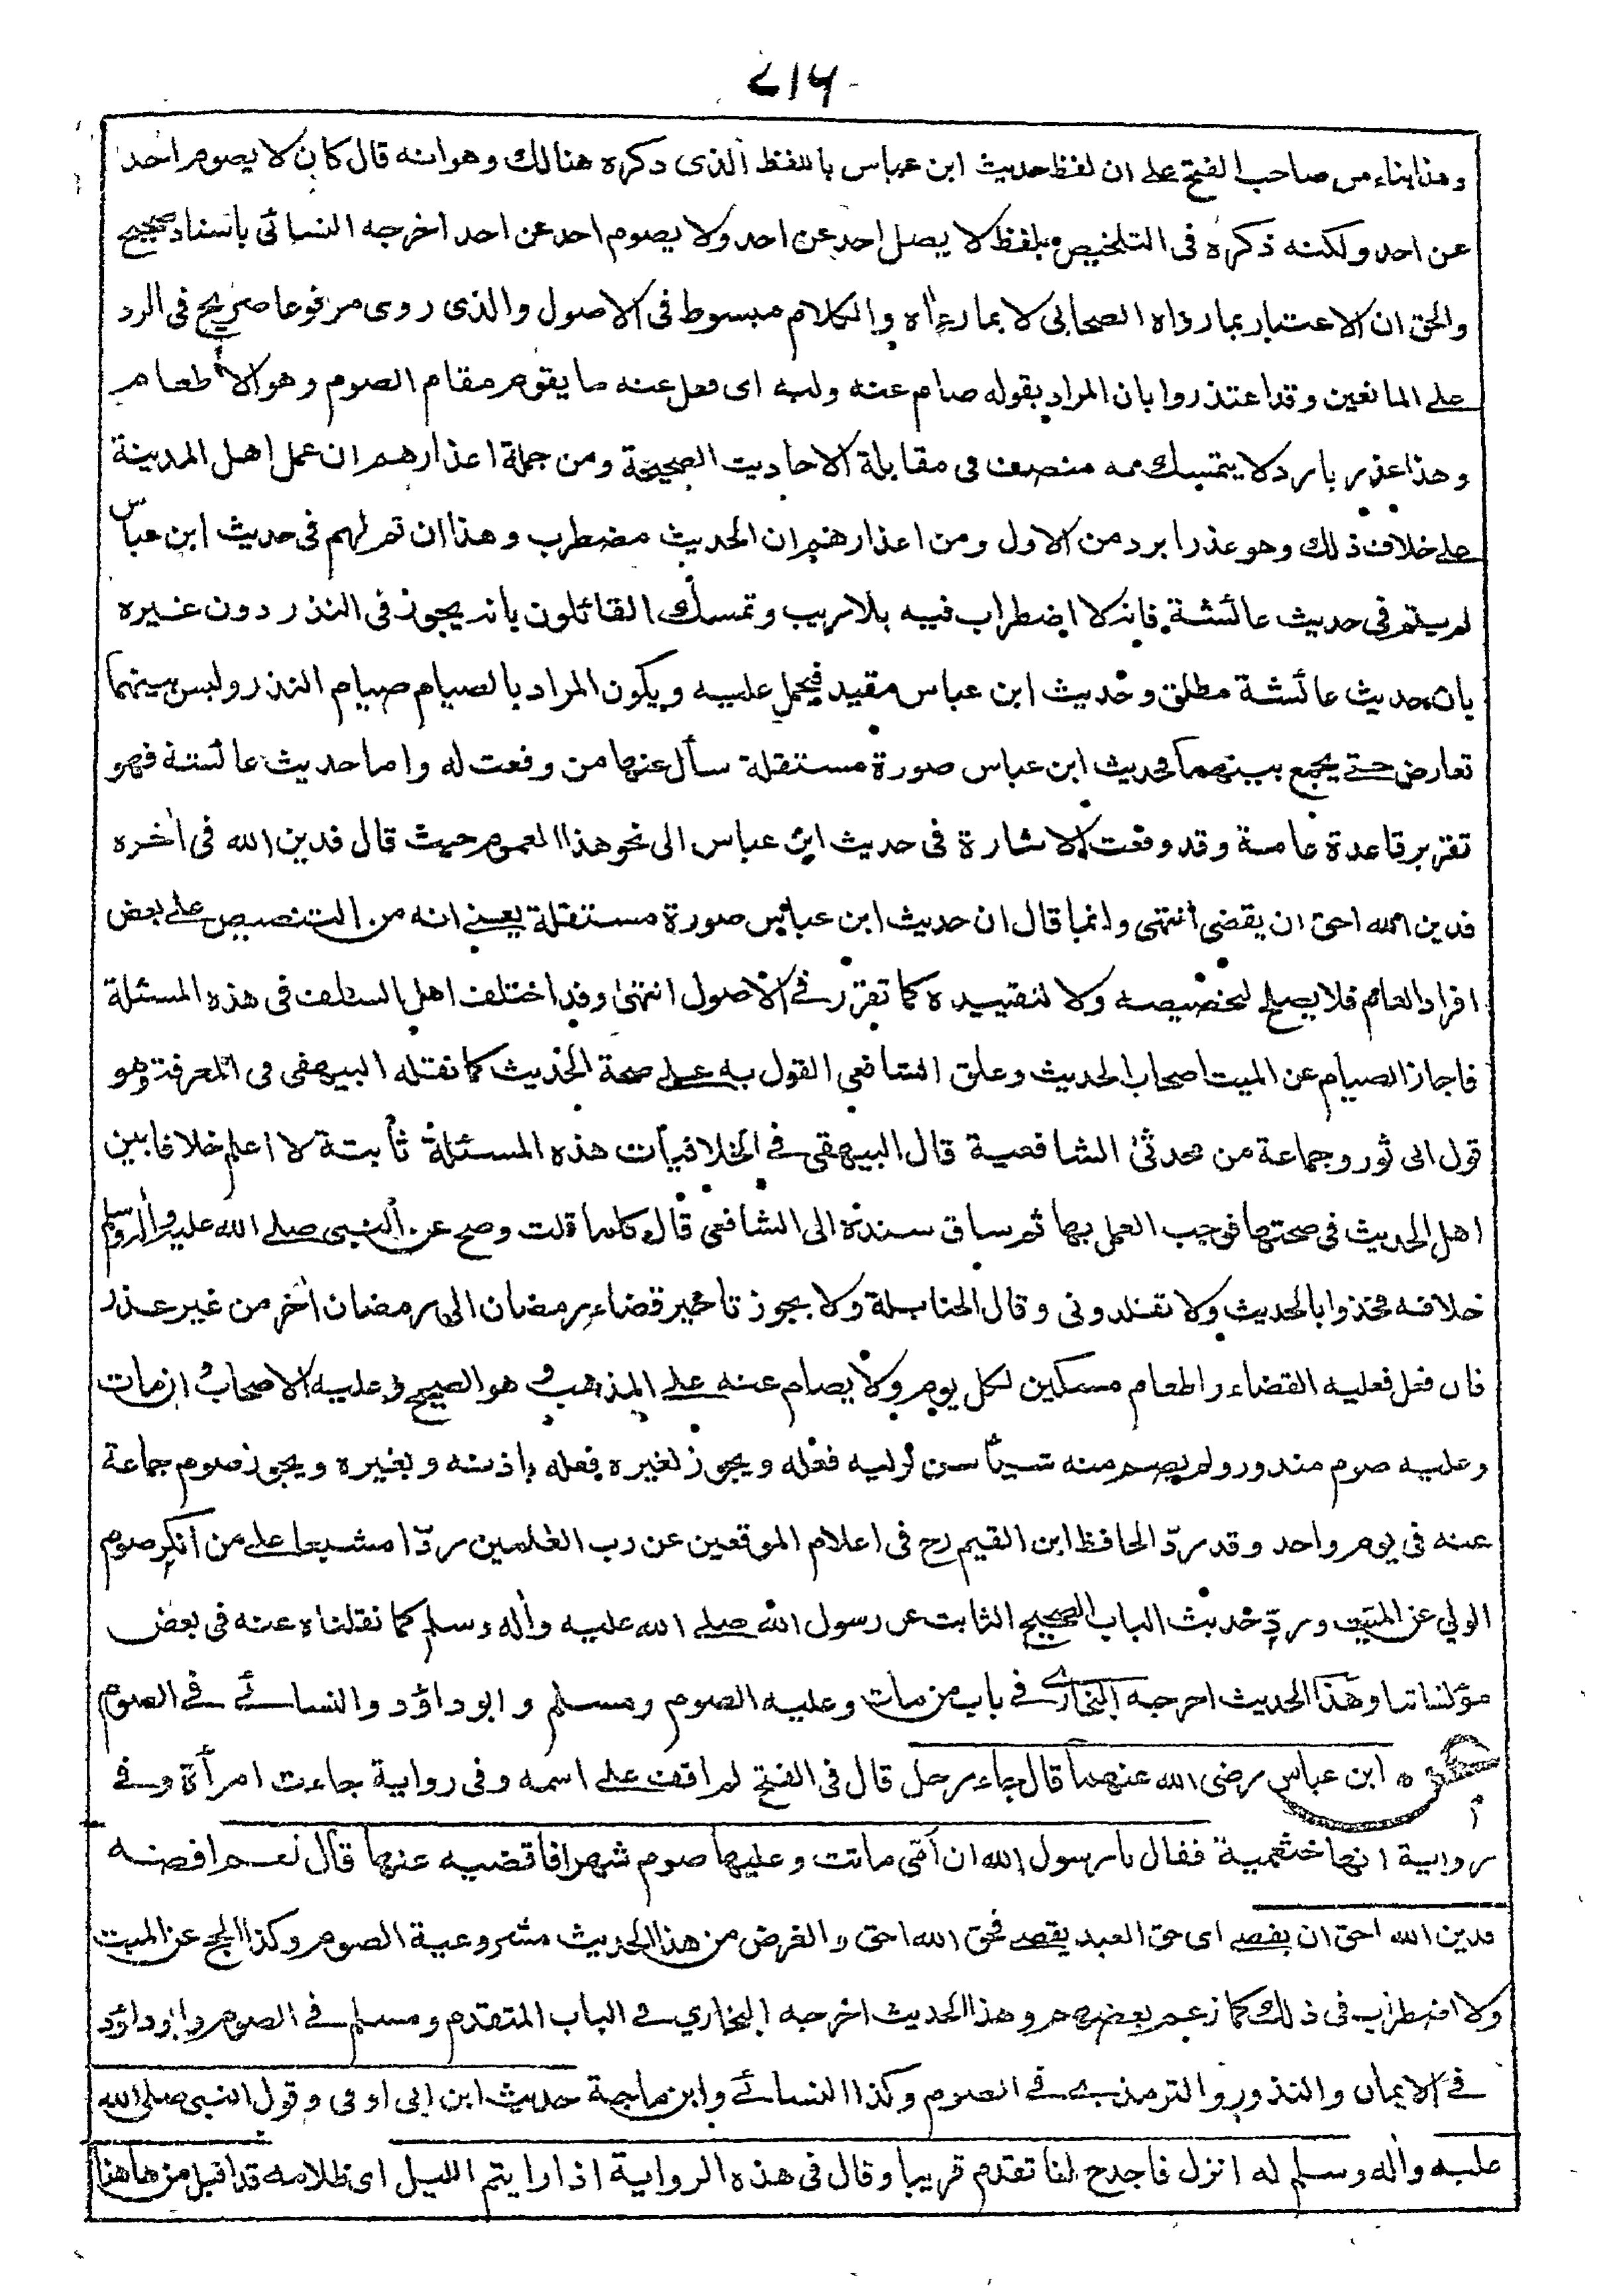 ٧١٦
وهذا بناء من صاحب الفتح على ان لفظ حديث ابن عباس باللفظ الذى ذكره هنالك وهو انه قال كان لا يصوم احد
عن احد ولكنه ذكره فى التلخيص بلفظ لا يصل احد عن احد ولا يصوم احد عن احد اخرجه النسائى باسناد صحيح
والحق ان الاعتبار بما رواه الصحابى لا بما رءاه والكلام مبسوط فى الاصول والذى روى مرفوعا صريح فى الرد
على المانعين وقد اعتذروا بان المراد بقوله صام عنه وليه اى فعل عنه ما يقوم مقام الصوم وهو الاطعام
وهذا عذر بارد لا يتمسك به منصف فى مقابلة الاحاديث الصحيحة ومن جملة اعذارهم ان عمل اهل المدينة
على خلاف ذلك وهو عذر ابرد من الاول ومن اعذارهم ان الحديث مضطرب وهذا ان تم لهم فى حديث ابن عباس
لم يتم فى حديث عائشة فانه لا اضطراب فيه بلا ريب وتمسك القائلون بانه يجوز فى النذر دون غيره
بان حديث عائشة مطلق وحديث ابن عباس مقيد فيحمل عليه ويكون المراد بالصيام صيام النذر وليس بينهما
تعارض حتى يجمع بينهما فحديث ابن عباس صورة مستقلة سأل عنها من وقعت له واما حديث عائشة فهو
تقرير قاعدة عامة وقد وقعت الاشارة فى حديث ابن عباس الى نحو هذا العموم حيث قال فدين الله فى أخره
فدين الله احق ان يقضى انتهى وانما قال ان حديث ابن عباس صورة مستقلة يعنى انه من التنصيص على بعض
افراد العام فلا يصلح لتخصيصه ولا لتقييده كما تقرر فى الاصول انتهى وقد اختلف اهل السلف فى هذه المسئلة
فاجاز الصيام عن الميت اصحاب الحديث وعلق الشافعى القول به على صحة الحديث كما نقله البيهقى فى المعرفة وهو
قول ابى ثور وجماعة من محدثى الشافعية قال البيهقى فى الخلافيات هذه المسئلة ثابتة لا اعلم خلافا بين
اهل الحديث فى صحتها فوجب العمل بها ثم ساق سنده الى الشافعى قال كلما قلت وصح عن النبى صلى الله عليه وأله وسلم
خلافه فخذوا بالحديث ولا تقلدونى وقال الحنابلة ولا يجوز تاخير قضاء رمضان الى رمضان أخر من غير عذر
فان فعل فعليه القضاء واطعام مسكين لكل يوم ولا يصام عنه على المذهب وهو الصحيح وعليه الاصحاب وان مات
وعليه صوم منذور ولم يصم منه شيئا سن لوليه فعله ويجوز لغيره فعله باذنه وبغيره ويجوز صوم جماعة
عنه فى يوم واحد وقد ردّ الحافظ ابن القيم رح فى اعلام الموقعين عن رب العلمين ردّا مشبعا على من انكر صوم
الولي عن الميت وردّ حديث الباب الصحيح الثابت عن رسول الله صلى الله عليه وأله وسلم كما نقلناه عنه فى بعض
مؤلفاتنا وهذا الحديث اخرجه البخارى فى باب من مات وعليه الصوم ومسلم وابو داؤد والنسائى فى الصوم
ابن عباس رضى الله عنهما قال جاء رجل قال فى الفتح لم اقف على اسمه وفى رواية جاءت امرأة وفى
رواية انها خثعمية فقال يا رسول الله ان أمّى ماتت وعليها صوم شهر افاقضيه عنها قال نعم اقضه
فدين الله احق ان يقضى اى حق العبد يقضى فحق الله احق والغرض من هذا الحديث مشروعية الصوم وكذا الحج عن الميت
ولا اضطراب فى ذلك كما زعم بعضهم وهذا الحديث اخرجه البخاري فى الباب المتقدم ومسلم فى الصوم وابو داؤد
فى الايمان والنذور والترمذى فى الصوم وكذا النسائى وابن ماجة حديث ابن ابى اوفى وقول النبى صلى الله
عليه وأله وسلم له انزل فاجدح لنا تقدم قريبا وقال فى هذه الرواية اذا رايتم الليل اى ظلامه قد اقبل من هاهنا